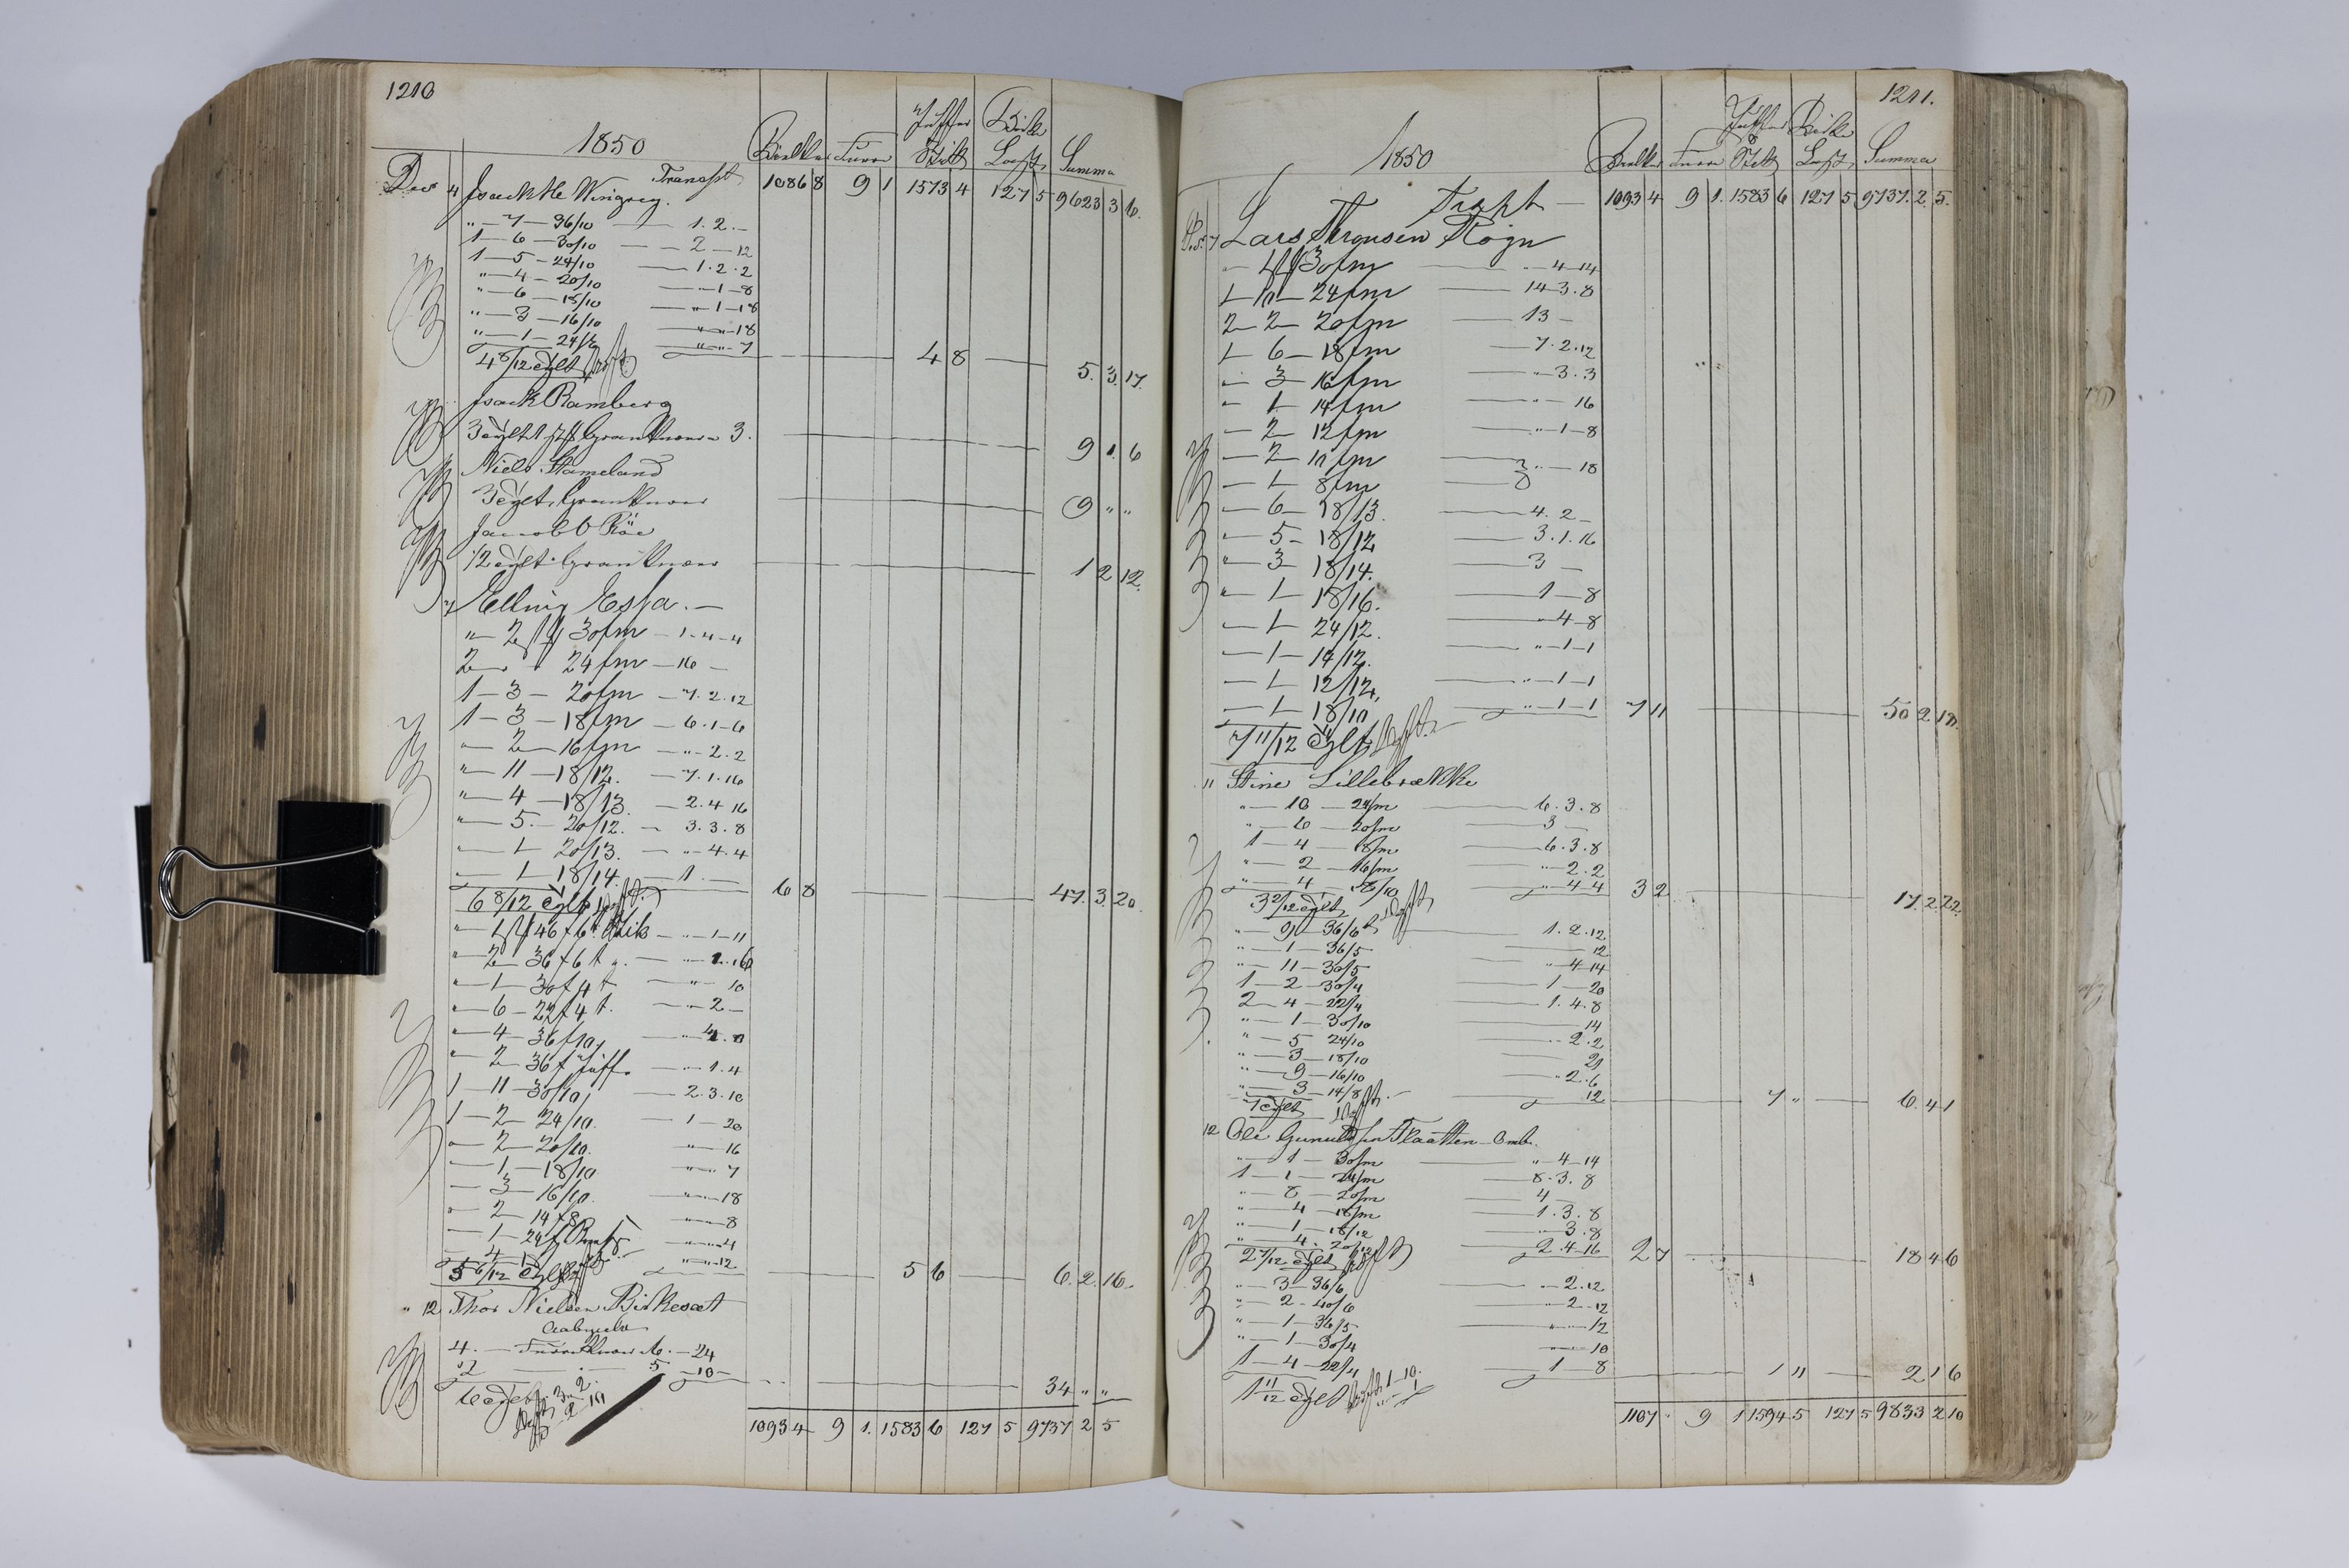 1210
1850
Bielker Furre Juffer & Stik Birke Last Summa
Dec 4 Transpt 1086 8 9 1 1573 4 127 5 9623 3 6
Isack H Wingreg.
" — 7 — 36/10 — 1. 2. —
1 — 6 — 30/10 — 2 — 12
1 — 5 — 24/10 — 1. 2. 2
" — 4 — 20/10 — " — 1 — 8
" — 6 — 18/10 — " — 1 — 18
" — 3 — 16/10 — " — " — 18
" — 1 — 24/8 — " — " — 7
4 8/12 Tylt 4 8 5. 3. 17.
Isack Ramberg
3 Tylt Grankuner 3. 9 1. 6
Niels Stameland
3 Tylt. Grankuner 9 " "
Jacob O Röe
1/2 Tylt Grankuner 1 2 12.
7 Elling Espa. —
" — 2 30 fm — 1 - 4 - 4
2 — " 24 fm — 16 —
1 — 3 — 20 fm — 7. 2. 12
1 — 3 — 18 fm — 6. 1 - 6
" — 2 — 16 fm — " - 2. 2
" — 11 — 18/12. — 7. 1. 16
" — 4 — 18/13. — 2. 4 16
" — 5. — 20/12. — 3. 3. 8
" — 1 — 20/13. — " 4. 4
— 1 — 18/14. — 1. —
6 8/12 Tylt 6 8 47. 3. 20.
" — 1 46 f 6 t Stik — " — 1 — 11
" — 2 — 36 f 6 t " — " 1. 16
" — 1 — 30 f 4 t — " — 10
" — 6 — 22 f 4 t. — " — 2 —
" — 4 — 36 f 10, — " 4. 8
" — 2 — 36 f Juff. — " — 1. 4
1 — 11 — 30/10 — 2. 3. 10
1 — 2 — 24/10. — 1 — 20
" — 2 — 20/10. — " — 16
— 1 — 18/10 — " — 7
— 3 — 16/10. — " — 18
" — 2 — 14 f 8 — " — 8
— 1 — 24 f — " — 4
" — 12
5 6/12 Tylt 5 6 6. 2. 16.
" 12 Thor Nielsen Birkesæt
4. — Furrekuner 6. — 24
2 — " — 5 — 10 —
34 " "
6 Tylt
1093 4 9 1. 1583 6 127 5 9737 2 5
1211.
1850
Bielker Furre Juffer & Stik Birke Last Summa
Trspt — 1093 4 9 1. 1583 6 127 5 9737. 2. 5.
7 Lars Thronsen Rogn
" — 1 30 fm — " — 4 — 14
1 10 — 24 fm — 14 — 3. 8
2 — 2 — 20 fm — 13 —
1 6 — 18 fm — 7. 2. 12
" — 3 — 16 fm — " — 3. 3
" 1 — 14 fm — " — 16
— 2 — 12 fm — " — 1 — 8
— 2 — 10 fm — " — 18
— 1 — 8 fm — 8
— 6 — 18/13. — 4. 2 —
" — 5 — 18/12 — 3. 1. 16
" — 3 — 18/14. — 3 —
" — 1 — 18/16. — 1 — 8
— 1 — 24/12. — " 4 — 8
— 1 — 14/12. — " — 1 — 1
— 1 — 12/12, — " — 1 — 1
— 1 — 18/10 — " — 1 — 1 7 11 50 2 18.
7 11/12 Tylt
11 Stine Lillebrække
" — 10 — 24/m — 6. 3. 8
" — 6 — 20/m — 3 —
1 — 4 — 18/m — 6. 3. 8
" — 2 — 16/m — " 2. 2
" — 4 — 18/10 — " 4 4 3 2 17. 2. 22.
3 2/12 Tylt
" — 9 — 36/6 — 1. 2. 12
" — 1 — 36/5 — 12
" — 11 — 30/5 — " 4 14
1 — 2 — 30/4 — 1 — 20
2 — 4 — 22/4 — 1. 4. 8
" — 1 — 30/10 — 14
" — 5 24/10 — " 2. 2
" — 3 — 18/10 — 21
" — 9 — 16/10 — " 2. 6
" — 3 — 14/8 — 12 7 " 6. 4 1
7 Tylt
12 Ole Gunulfsen Flaatten
" — 1 — 30/m — " — 4 — 14
1 — 1 — 24/m — 8. 3. 8
" — 8 — 20/m — 4 —
" — 4 — 18/m — 1. 3. 8
" — 1 — 18/12 — " 3. 8
" — 4. 20/12 — 2. 4 — 16 2 7 18 4 6
2 7/12 Tylt
" — 3 — 36/6 — " — 2. 12
" — 2 — 40/6 — " — 2 — 12
" — 1 — 36/5 — " — 12
" — 1 — 30/4 — " — 10
1 — 4 — 22/4 — 1 — 8 1 11 2 1 6
1 11/12 Tylt
1107 " 9 1 1594 5 127 5 9833 2 10